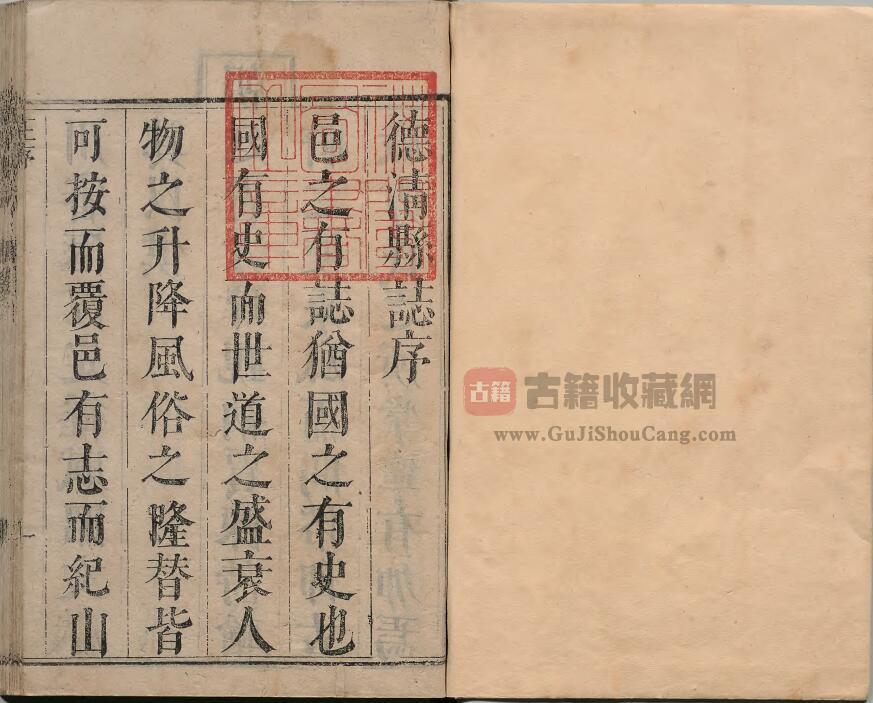 德清縣誌序
邑之有誌猶國之有史也
國有史而世道之盛衰人
物之升降風俗之隆替皆
可按而覆邑有志而紀山
古籍
古籍收藏網
www.GuJiShouCang.com